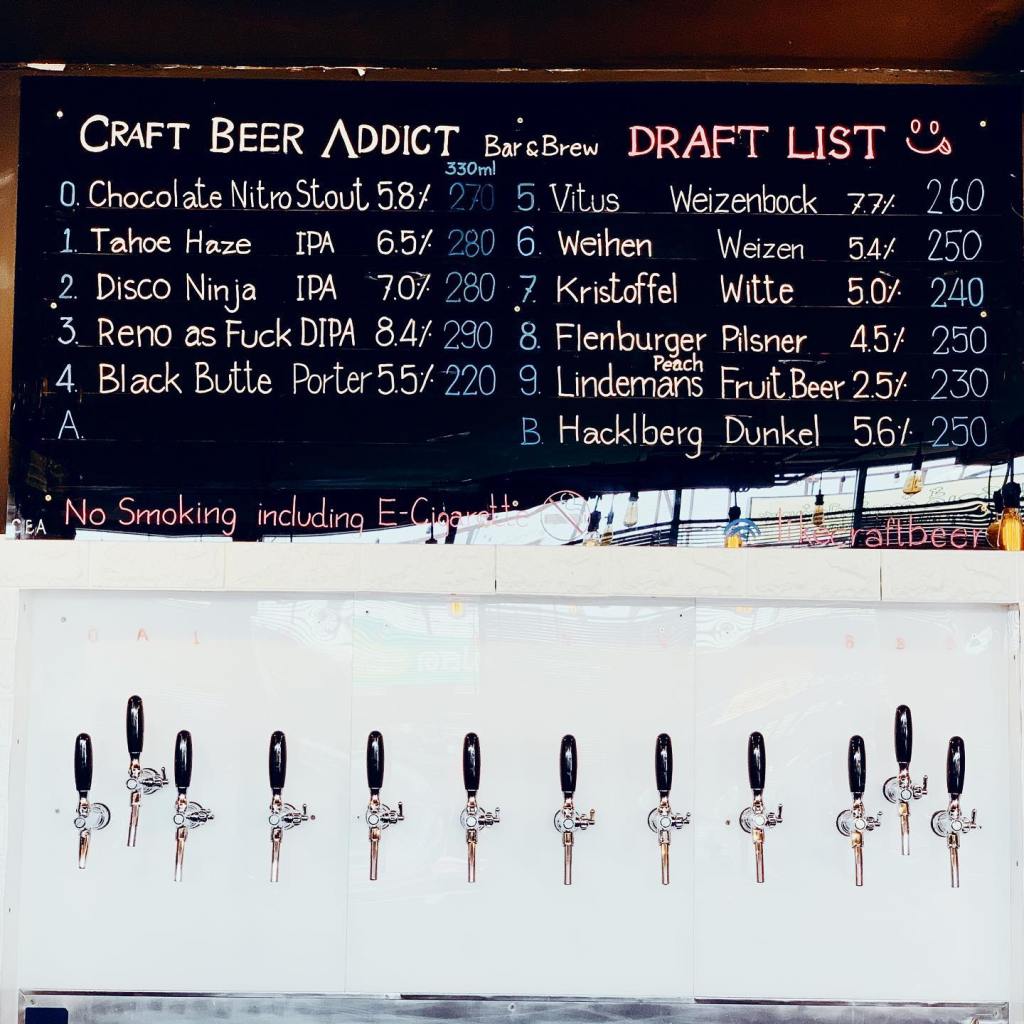 CRAFT BEER ADDICT Bar & Brew DRAFT LIST
330ml
0. Chocolate Nitro Stout 5.8% 270
1. Tahoe Haze IPA 6.5% 280
2. Disco Ninja IPA 7.0% 280
3. Reno as Fuck DIPA 8.4% 290
4. Black Butte Porter 5.5% 220
A.
5. Vitus Weizenbock 7.7% 260
6. Weihen Weizen 5.4% 250
7. Kristoffel Witte 5.0% 240
8. Flenburger Pilsner 4.5% 250
Peach
9. Lindemans Fruit Beer 2.5% 230
B. Hacklberg Dunkel 5.6% 250
No Smoking including E-Cigarette
0 A 1